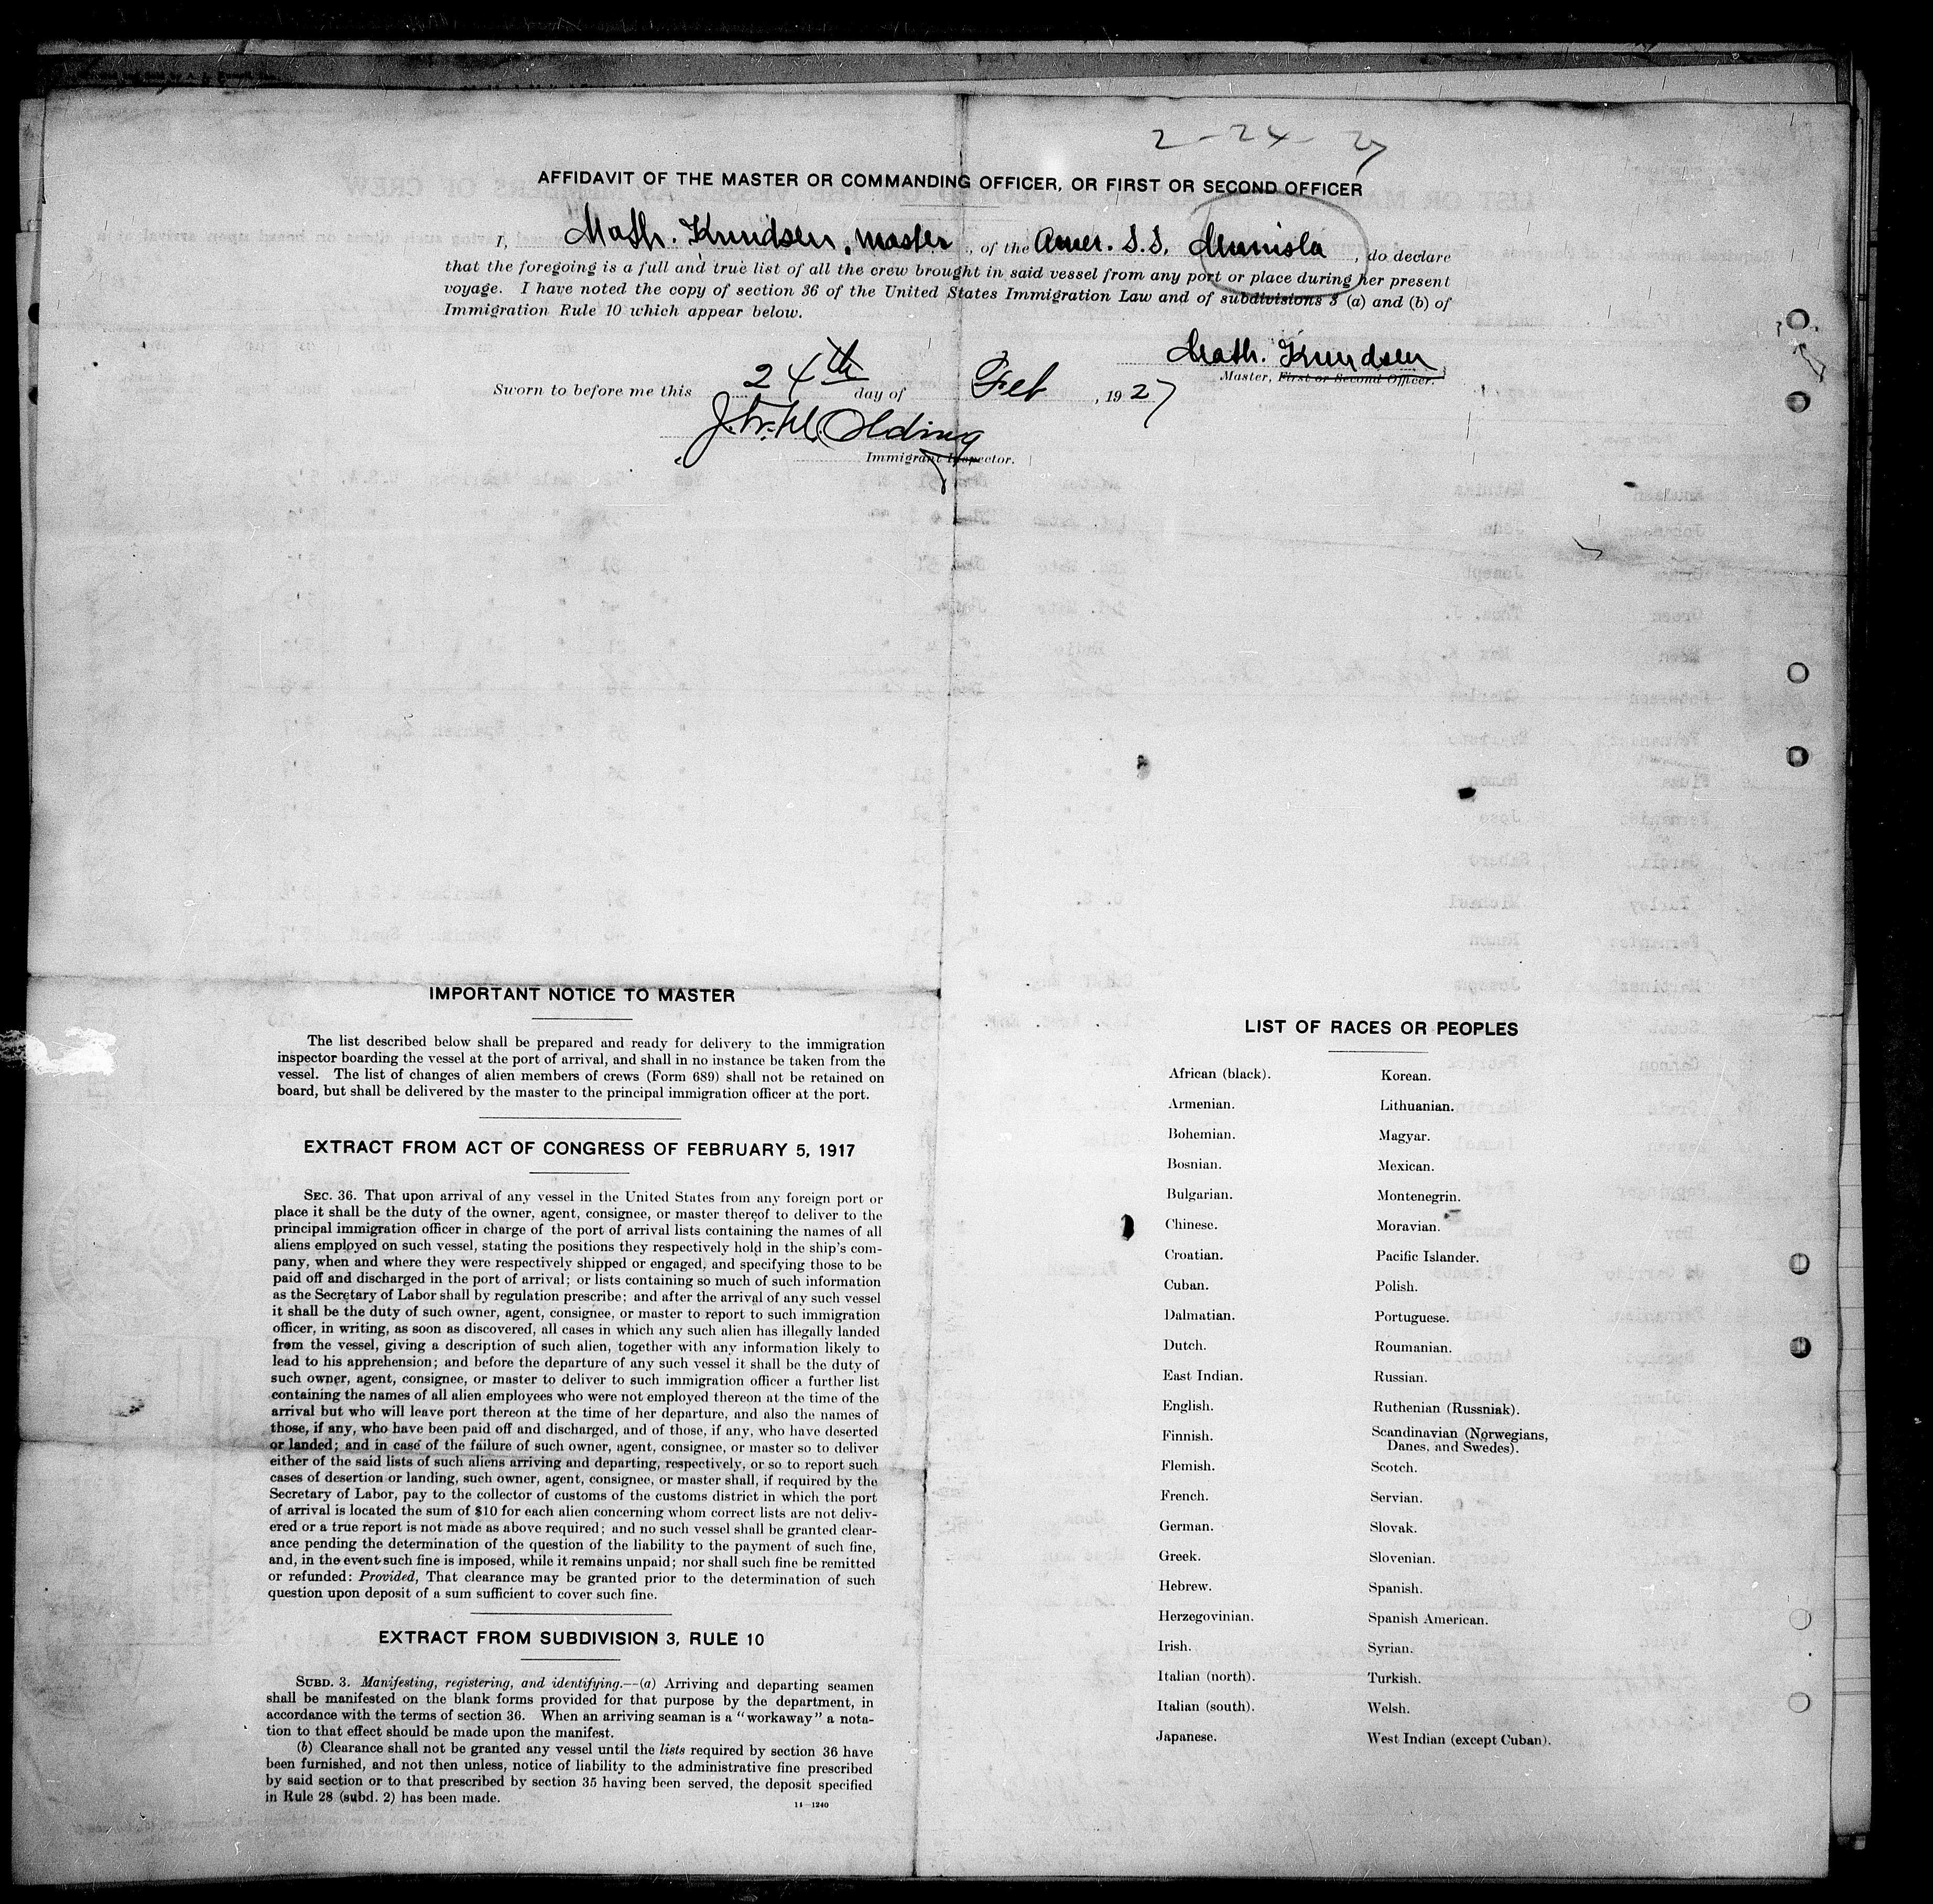 2-24-27
AFFIDAVIT OF THE MASTER OR COMMANDING OFFICER, OR FIRST OR SECOND OFFICER
I, Math. Knudsen, master, of the Amer. S.S. Munisla, do declare
that the foregoing is a full and true list of all the crew brought in said vessel from any port or place during her present
voyage. I have noted the copy of section 36 of the United States Immigration Law and of subdivisions 3 (a) and (b) of
Immigration Rule 10 which appear below.
Math. Knudsen
Master, First or Second Officer.
Sworn to before me this 24th day of Feb, 1927
Olding
Immigrant Inspector.
IMPORTANT NOTICE TO MASTER
The list described below shall be prepared and ready for delivery to the immigration
inspector boarding the vessel at the port of arrival, and shall in no instance be taken from the
vessel. The list of changes of alien members of crews (Form 689) shall not be retained on
board, but shall be delivered by the master to the principal immigration officer at the port.
EXTRACT FROM ACT OF CONGRESS OF FEBRUARY 5, 1917
SEC. 36. That upon arrival of any vessel in the United States from any foreign port or
place it shall be the duty of the owner, agent, consignee, or master thereof to deliver to the
principal immigration officer in charge of the port of arrival lists containing the names of all
aliens employed on such vessel, stating the positions they respectively hold in the ship's com-
pany, when and where they were respectively shipped or engaged, and specifying those to be
paid off and discharged in the port of arrival; or lists containing so much of such information
as the Secretary of Labor shall by regulation prescribe; and after the arrival of any such vessel
it shall be the duty of such owner, agent, consignee, or master to report to such immigration
officer, in writing, as soon as discovered, all cases in which any such alien has illegally landed
from the vessel, giving a description of such alien, together with any information likely to
lead to his apprehension; and before the departure of any such vessel it shall be the duty of
such owner, agent, consignee, or master to deliver to such immigration officer a further list
containing the names of all alien employees who were not employed thereon at the time of the
arrival but who will leave port thereon at the time of her departure, and also the names of
those, if any, who have been paid off and discharged, and of those, if any, who have deserted
or landed; and in case of the failure of such owner, agent, consignee, or master so to deliver
either of the said lists of such aliens arriving and departing, respectively, or so to report such
cases of desertion or landing, such owner, agent, consignee, or master shall, if required by the
Secretary of Labor, pay to the collector of customs of the customs district in which the port
of arrival is located the sum of $10 for each alien concerning whom correct lists are not deliv-
ered or a true report is not made as above required; and no such vessel shall be granted clear-
ance pending the determination of the question of the liability to the payment of such fine,
and, in the event such fine is imposed, while it remains unpaid; nor shall such fine be remitted
or refunded: Provided, That clearance may be granted prior to the determination of such
question upon deposit of a sum sufficient to cover such fine.
EXTRACT FROM SUBDIVISION 3, RULE 10
SUBD. 3. Manifesting, registering, and identifying.—(a) Arriving and departing seamen
shall be manifested on the blank forms provided for that purpose by the department, in
accordance with the terms of section 36. When an arriving seaman is a "workaway" a nota-
tion to that effect should be made upon the manifest.
(b) Clearance shall not be granted any vessel until the lists required by section 36 have
been furnished, and not then unless, notice of liability to the administrative fine prescribed
by said section or to that prescribed by section 35 having been served, the deposit specified
in Rule 28 (subd. 2) has been made.
14—1240
LIST OF RACES OR PEOPLES
African (black).
Armenian.
Bohemian.
Bosnian.
Bulgarian.
Chinese.
Croatian.
Cuban.
Dalmatian.
Dutch.
East Indian.
English.
Finnish.
Flemish.
French.
German.
Greek.
Hebrew.
Herzegovinian.
Irish.
Italian (north).
Italian (south).
Japanese.
Korean.
Lithuanian.
Magyar.
Mexican.
Montenegrin.
Moravian.
Pacific Islander.
Polish.
Portuguese.
Roumanian.
Russian.
Ruthenian (Russniak).
Scandinavian (Norwegians,
Danes, and Swedes).
Scotch.
Servian.
Slovak.
Slovenian.
Spanish.
Spanish American.
Syrian.
Turkish.
Welsh.
West Indian (except Cuban).